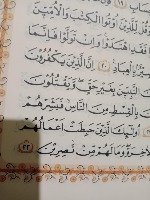 وَقُل لِّلَّذِينَ أُوتُوا۟ ٱلْكِتَـٰبَ وَٱلْأُمِّيِّـۧنَ
فَقَدِ ٱهْتَدَوا۟ ۖ وَّإِن تَوَلَّوْا۟ فَإِنَّمَا
بِٱلْعِبَادِ ٢٠ إِنَّ ٱلَّذِينَ يَكْفُرُونَ
ٱلنَّبِيِّـۧنَ بِغَيْرِ حَقٍّ وَيَقْتُلُونَ
بِٱلْقِسْطِ مِنَ ٱلنَّاسِ فَبَشِّرْهُم
أُو۟لَـٰٓئِكَ ٱلَّذِينَ حَبِطَتْ أَعْمَـٰلُهُمْ
وَمَا لَهُم مِّن نَّـٰصِرِينَ ٢٢